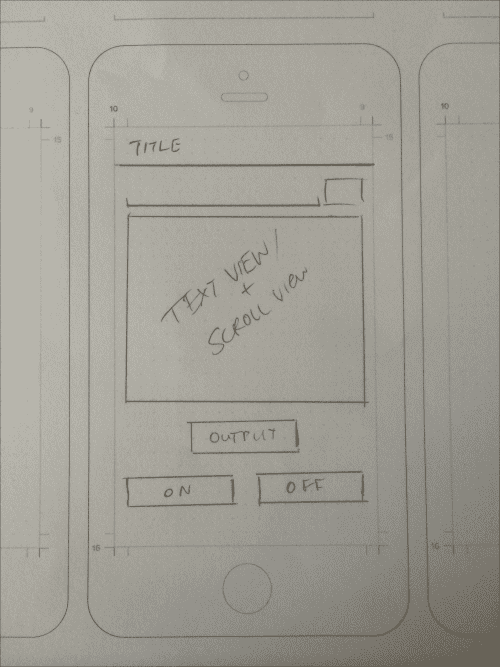 9
10
9
10
TITLE
TEXT VIEW/
+
SCROLL VIEW
OUTPUT
ON
OFF
16
16